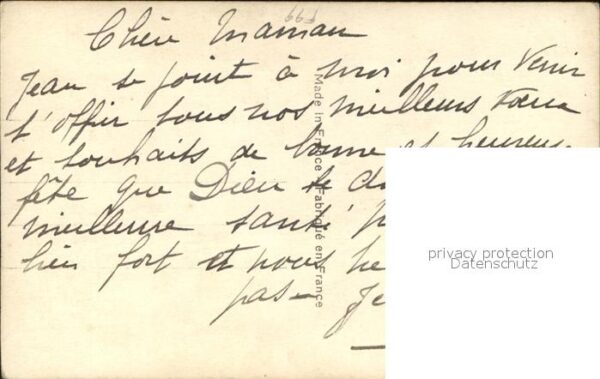 669
Chère Maman
Jean se joint à moi pour venir
t'offrir tous nos meilleurs vœux
et souhaits de bonne et heureuse
fête que Dieu te
meilleure santé
bien fort et nous
pas –
Made in France - Fabriqué en France
privacy protection
Datenschutz